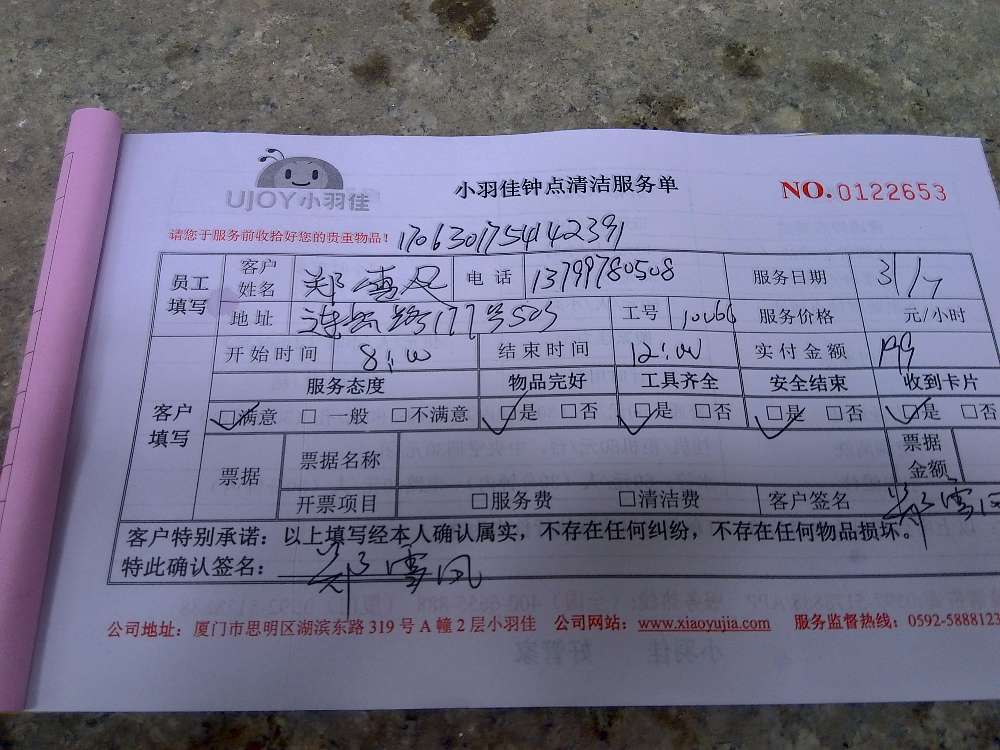 UJOY小羽佳
小羽佳钟点清洁服务单
NO.0122653
请您于服务前收拾好您的贵重物品！
1706301754142391
员工填写 客户姓名 郑雪凤 电话 13799780508 服务日期 31/7
地址 莲岳路177号503 工号 服务价格 元/小时
客户填写 开始时间 8:00 结束时间 12:00 实付金额
服务态度 物品完好 工具齐全 安全结束 收到卡片
☑满意 □一般 □不满意 ☑是 □否 ☑是 □否 ☑是 □否 ☑是 □否
票据 票据名称 票据金额
开票项目 □服务费 □清洁费 客户签名 郑雪凤
客户特别承诺：以上填写经本人确认属实，不存在任何纠纷，不存在任何物品损坏。
特此确认签名： 郑雪凤
公司地址：厦门市思明区湖滨东路 319 号 A 幢 2 层小羽佳 公司网站：www.xiaoyujia.com 服务监督热线：0592-5888123